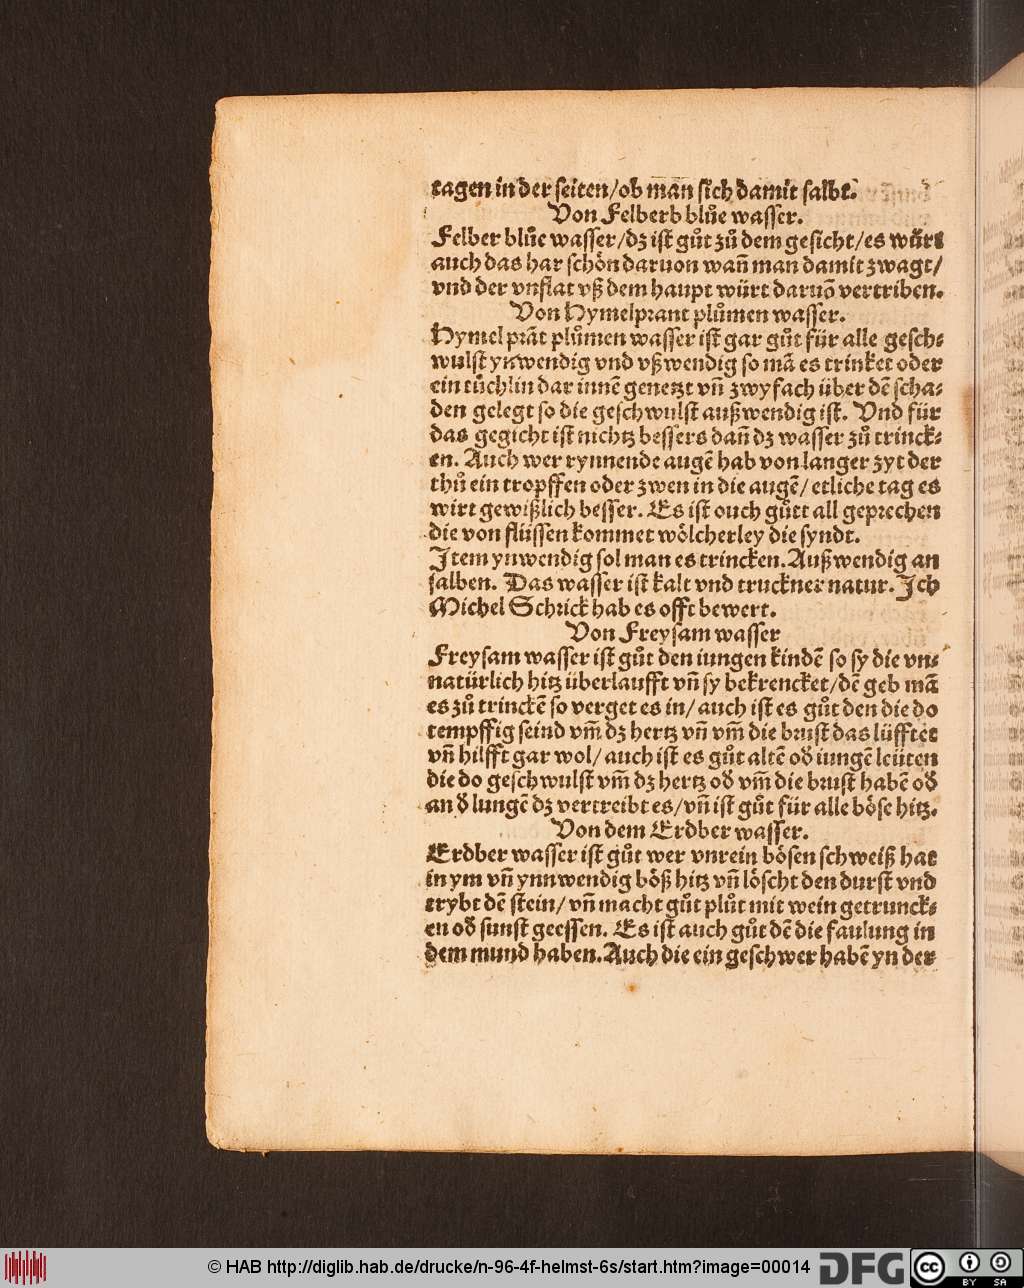 tagen in der seiten/ob man sich damit salbt.
Von Felberb blůe wasser.
Felber blůe wasser/dz ist gůt zů dem gesicht/es würt
auch das har schön daruon wañ man damit zwagt/
vnd der vnflat vß dem haupt würt daruõ vertriben.
Von Hymelprant plůmen wasser.
Hymel prãt plůmen wasser ist gar gůt für alle gesch⸗
wulst ynwendig vnd vßwendig so mã es trinket oder
ein tůchlin dar innẽ genetzt vñ zwyfach über dẽ scha⸗
den gelegt so die geschwulst außwendig ist. Vnd für
das gegicht ist nichtz bessers dañ dz wasser zů trinck⸗
en. Auch wer rynnende augẽ hab von langer zyt der
thů ein tropffen oder zwen in die augẽ/ etliche tag es
wirt gewißlich besser. Es ist ouch gůtt all geprechen
die von flüssen kommet wölcherley die syndt.
Item ynwendig sol man es trincken. Außwendig an
salben. Das wasser ist kalt vnd truckner natur. Ich
Michel Schrick hab es offt bewert.
Von Freysam wasser
Freysam wasser ist gůt den iungen kindẽ so sy die vn⸗
natürlich hitz überlaufft vñ sy bekrencket/dẽ geb mã
es zů trinckẽ so verget es in/ auch ist es gůt den die do
tempffig seind vm̃ dz hertz vñ vm̃ die brust das lüfftet
vñ hilfft gar wol/ auch ist es gůt altẽ od̓ iungẽ leüten
die do geschwulst vm̃ dz hertz od̓ vm̃ die brust habẽ od̓
an d̓ lungẽ dz vertreibt es/vñ ist gůt für alle böse hitz.
Von dem Erdber wasser.
Erdber wasser ist gůt wer vnrein bösen schweiß hat
in ym vñ ynnwendig böß hitz vñ löscht den durst vnd
trybt dẽ stein/ vñ macht gůt plůt mit wein getrunck⸗
en od̓ sunst geessen. Es ist auch gůt dẽ die faulung in
dem mund haben. Auch die ein geschwer habẽ yn der
© HAB http://diglib.hab.de/drucke/n-96-4f-helmst-6s/start.htm?image=00014
DFG
cc
BY SA